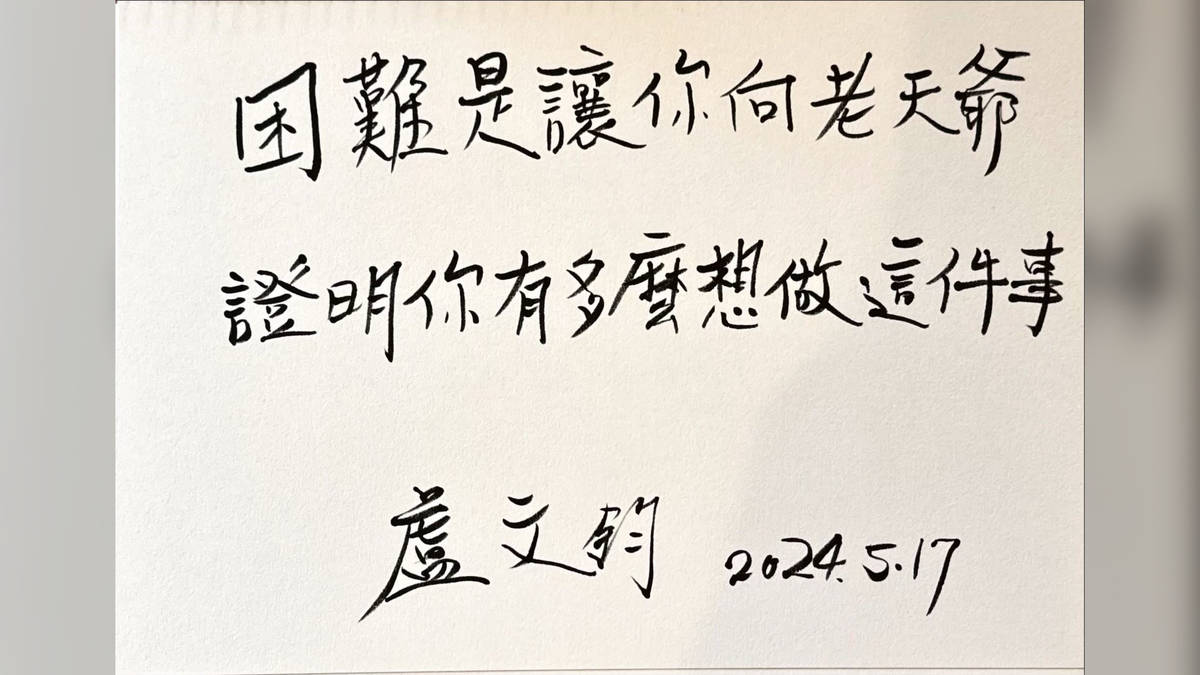 困難是讓你向老天爺
證明你有多麼想做這件事
盧文鈞 2024.5.17